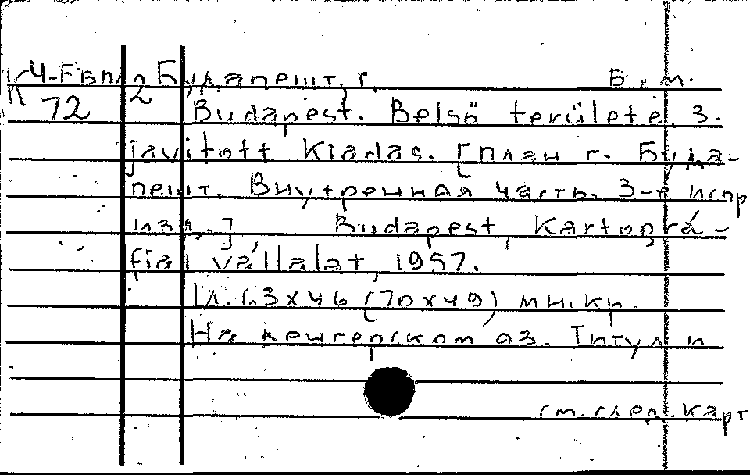 К 4-Евп 2 Будапешт, г. Б. м.
72 Budapest. Belső területe 3.
javított Kiadás. [План г. Буда-
пешт. Внутренная часть. 3-е испр
изд.] Budapest, Kartográ-
fiai vállalat, 1957.
1л. 63х46 (70х49) мн.кр.
На венгерском яз. Титул и
см. след. карт